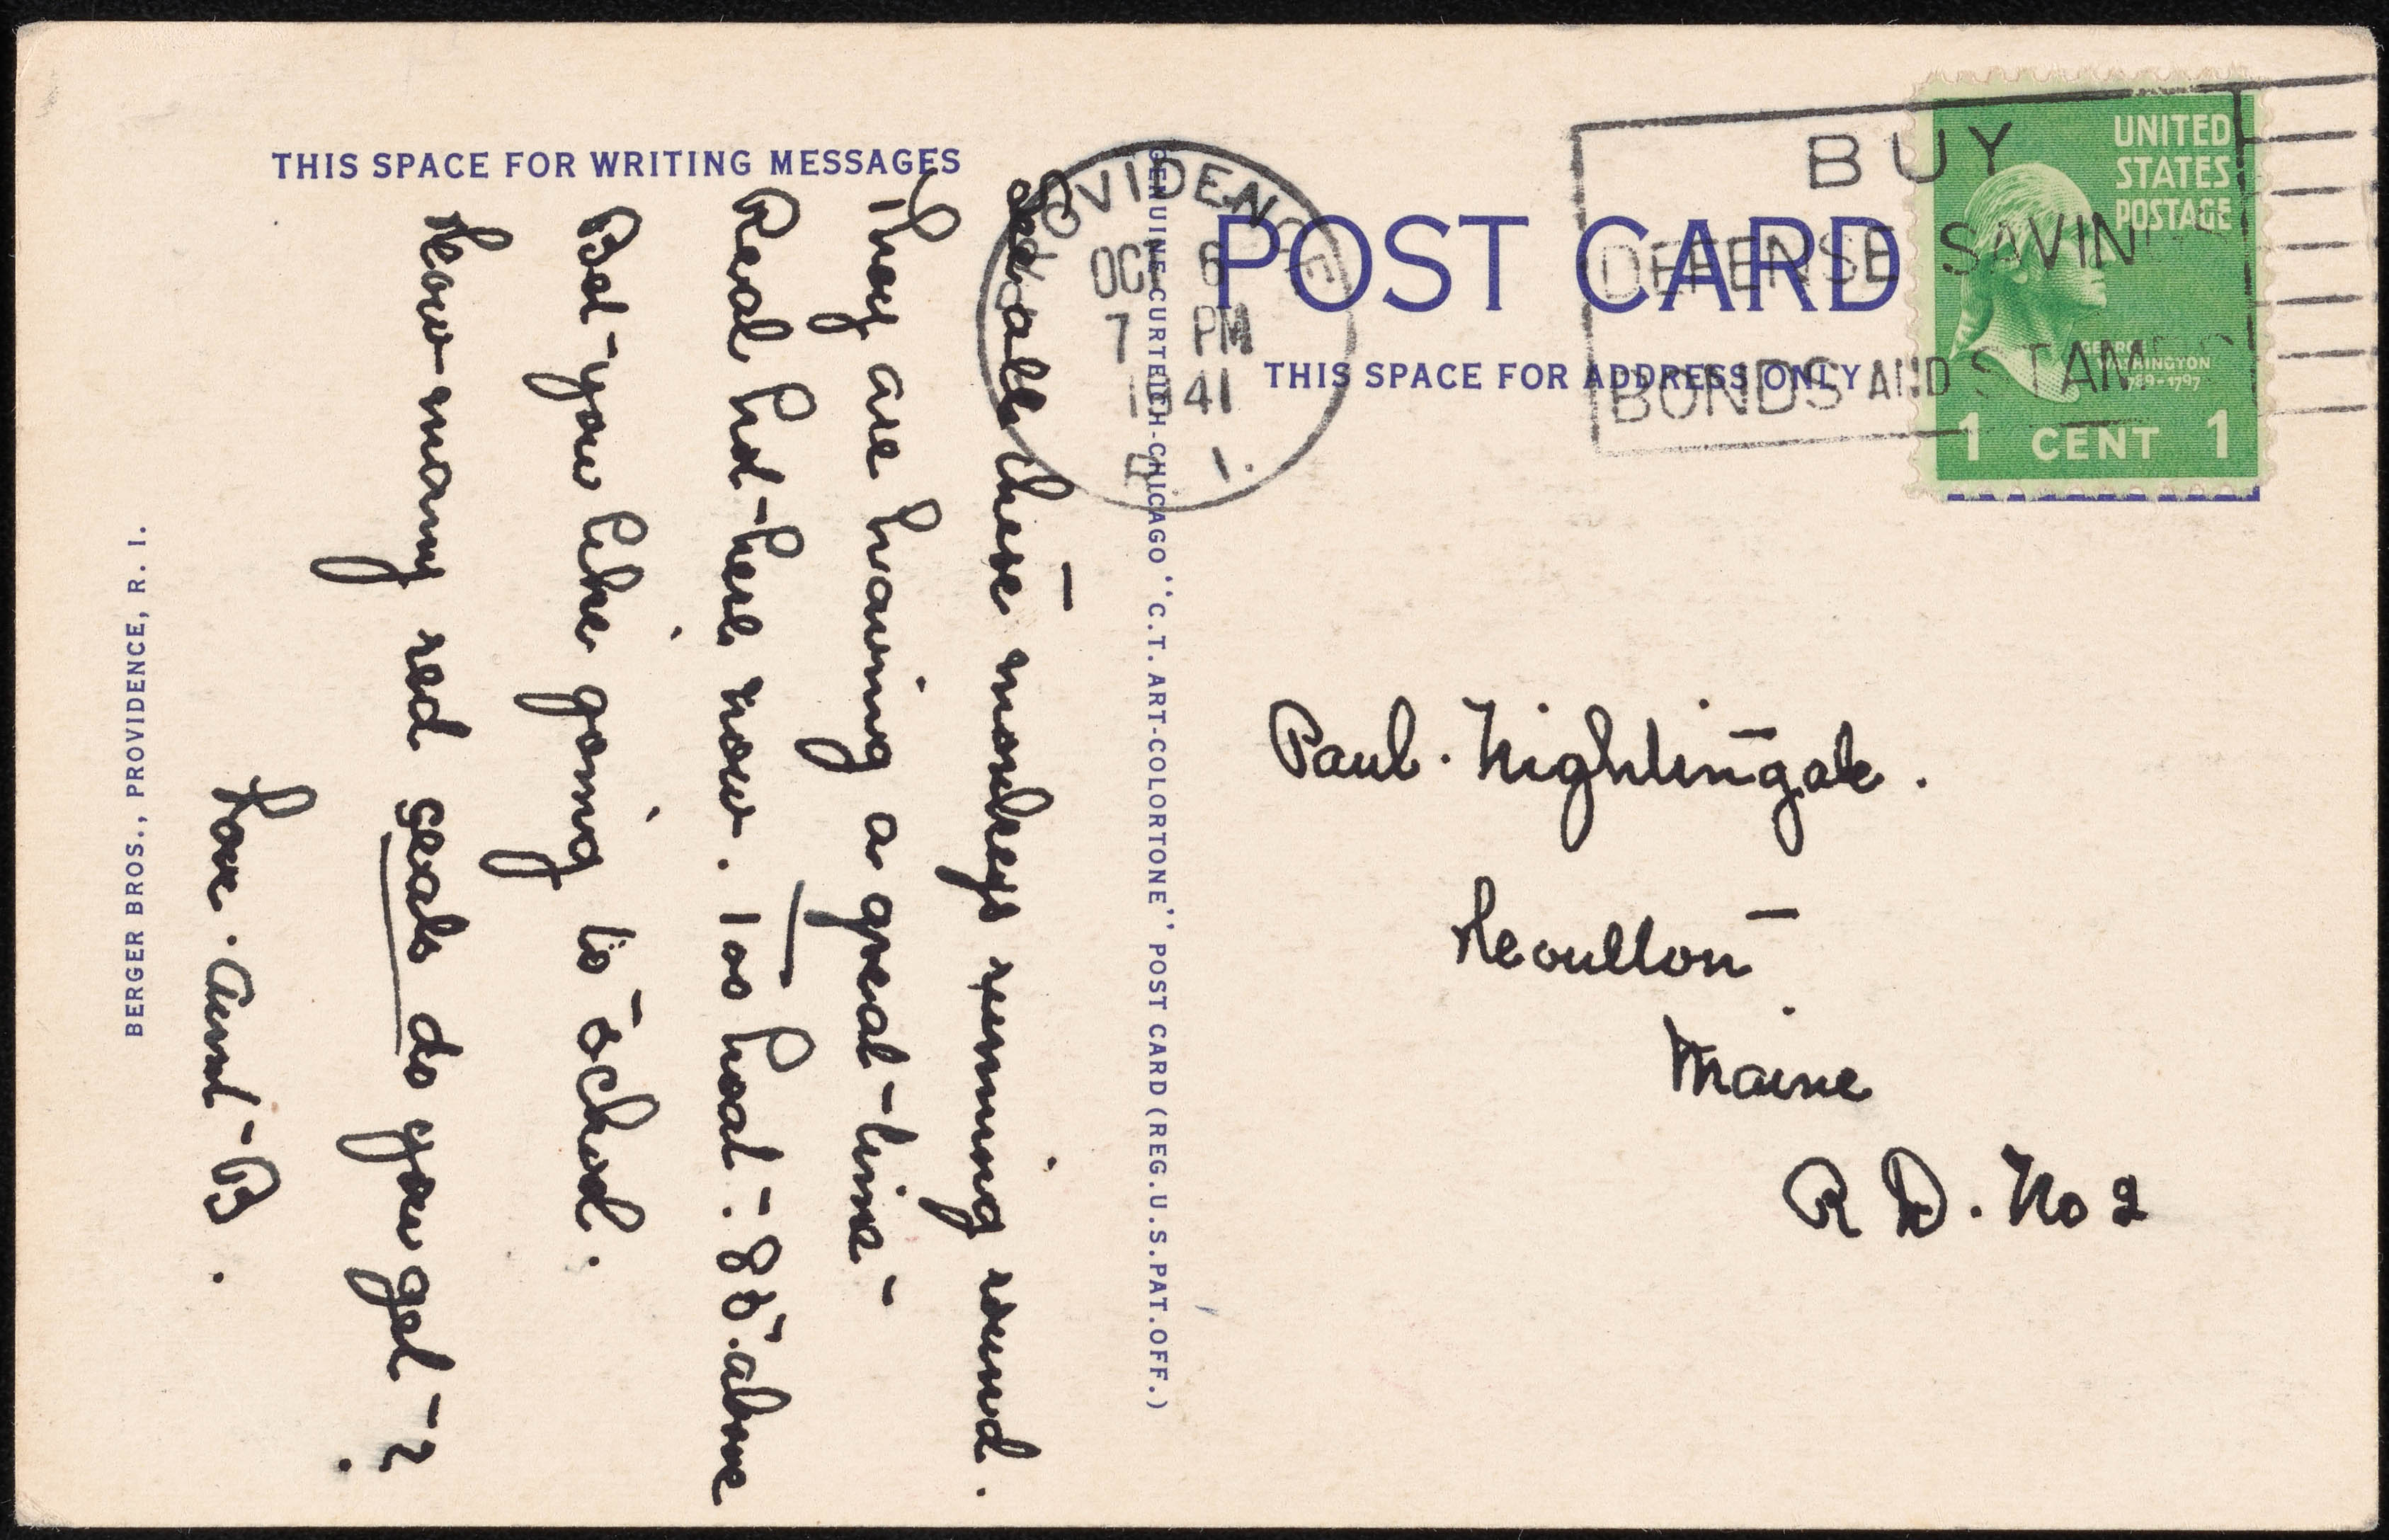 THIS SPACE FOR WRITING MESSAGES
See all these monkeys running round.
They are having a great time
Real hot here now. Too hot. 86 above
Bet you like going to school.
How many red seals do you get?
Love. Aunt B.
BERGER BROS., PROVIDENCE, R. I.
GENUINE CURTEICH-CHICAGO "C.T. ART-COLORTONE" POST CARD (REG.U.S.PAT.OFF.)
PROVIDENCE.
OCT 6
7 PM
1941
R. I.
POST CARD
THIS SPACE FOR ADDRESS ONLY
BUY
DEFENSE SAVINGS
BONDS AND STAMPS
UNITED
STATES
POSTAGE
GEORGE
WASHINGTON
1789-1797
1 CENT 1
Paul. Nightingale.
Houlton
Maine
R D. No 2